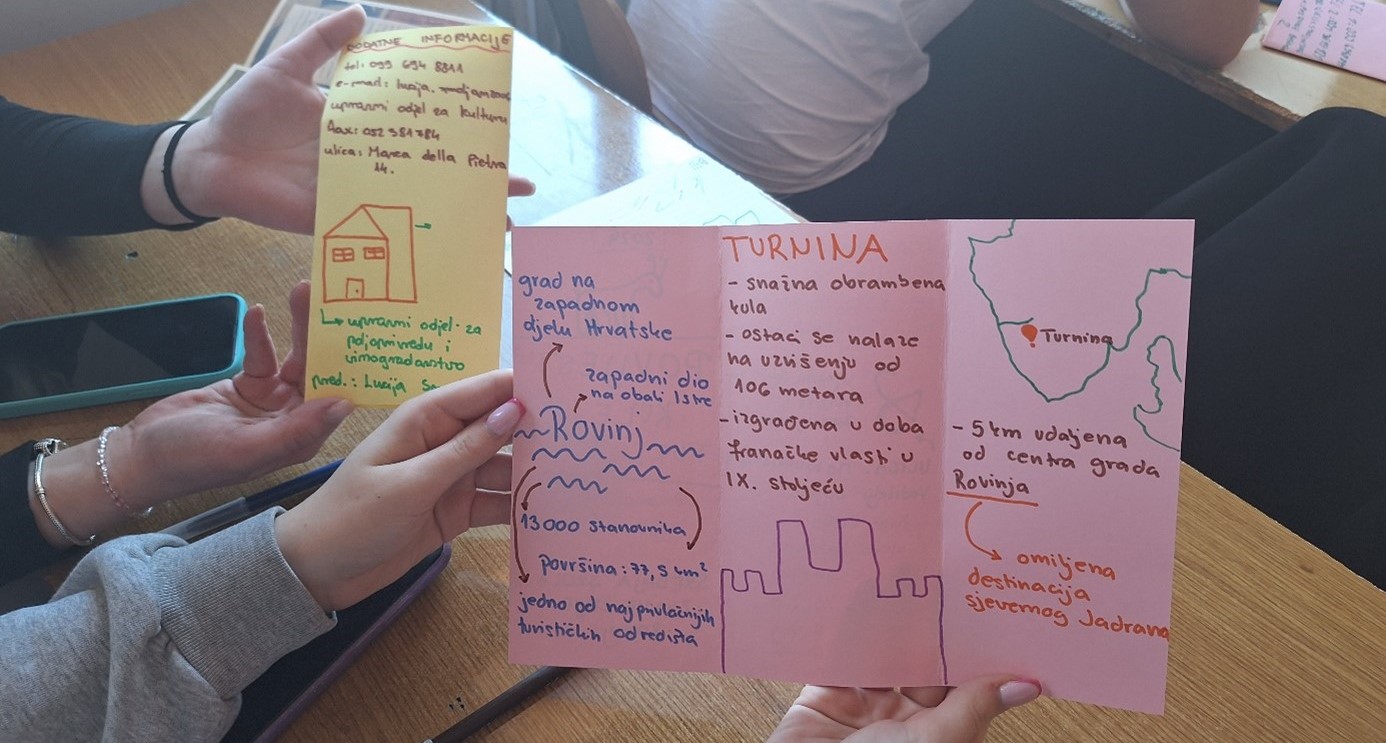 DODATNE INFORMACIJE
tel: 099 694 8811
e-mail: lucija.
upravni odjel za kulturu
fax: 052 381 784
ulica: Marca della Pietra
14.
upravni odjel za
poljoprivredu i
vinogradarstvo
pred.: Lucija
grad na
zapadnom
djelu Hrvatske
zapadni dio
na obali Istre
Rovinj
13000 stanovnika
površina: 77,5 km²
jedno od najprivlačnijih
turističkih odredišta
TURNINA
- snažna obrambena
kula
- ostaci se nalaze
na uzvišenju od
106 metara
- izgrađena u doba
franačke vlasti u
IX. stoljeću
Turnina
- 5 km udaljena
od centra grada
Rovinja
omiljena
destinacija
sjevernog Jadrana